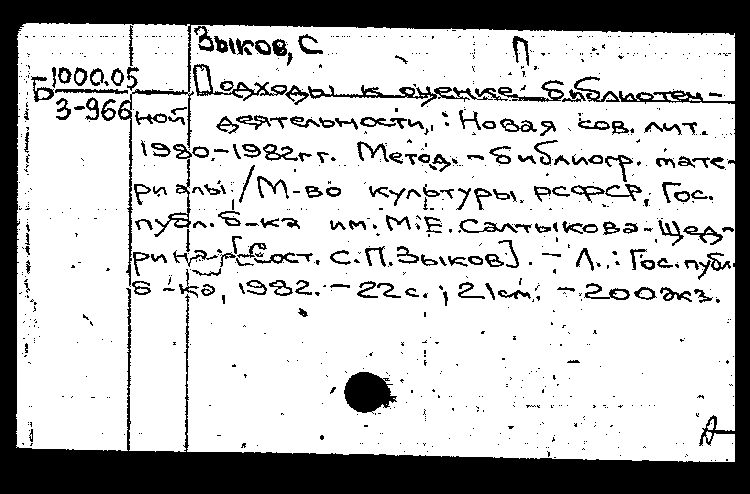 Зыков, С
П
Б-1000.05
3-966
Подходы к оценке библиотеч-
ной деятельности, : Новая сов. лит.
1980.-1982гг. Метод.-библиогр. мате-
риалы / М-во культуры РСФСР, Гос.
публ. б-ка им. М.Е. Салтыкова-Щед-
рина; [Сост. С.П. Зыков]. - Л. : Гос. публ.
б-ка, 1982. - 22с. ; 21см. - 200экз.